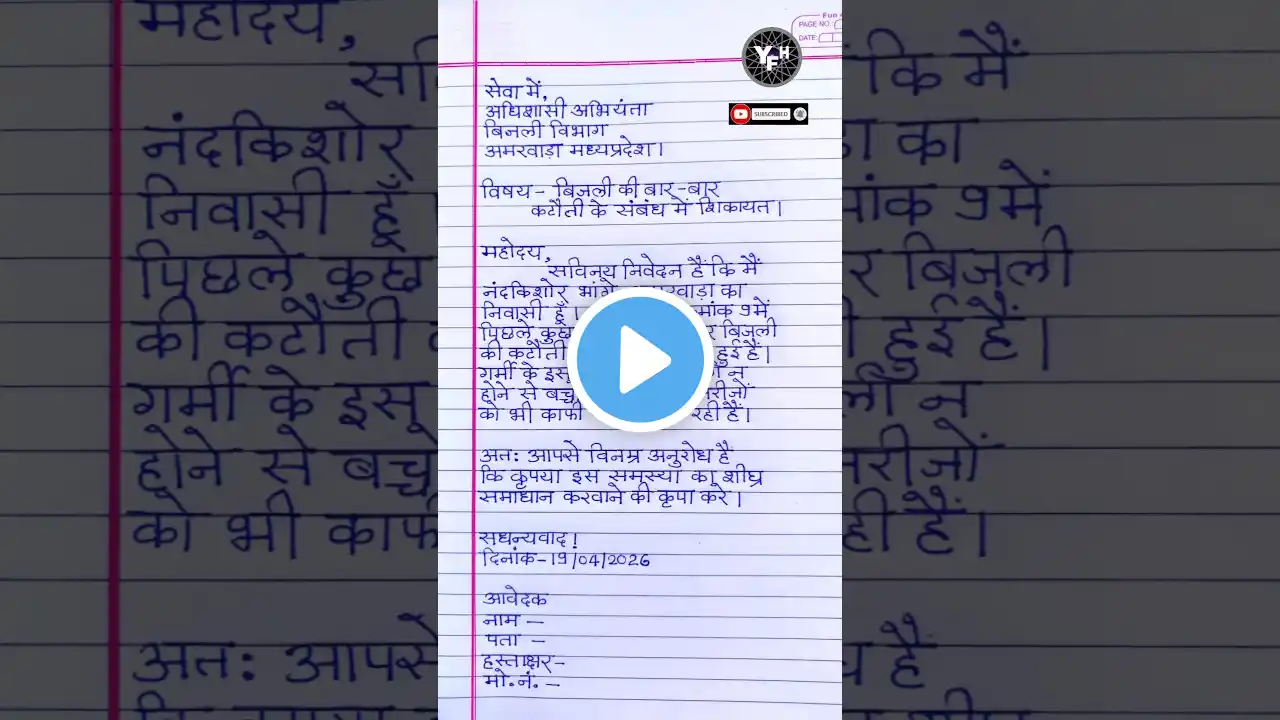 Fun
PAGE NO.:
DATE:
YFH
SUBSCRIBED
सेवा में,
अधिशासी अभियंता
बिजली विभाग
अमरवाड़ा मध्यप्रदेश।
विषय- बिजली की बार-बार
कटौती के संबंध में शिकायत।
महोदय,
सविनय निवेदन हैं कि मैं
नंदकिशोर का
निवासी हूँ। 9 में
पिछले कुछ बिजली
की कटौती हुई हैं।
गर्मी के इस न
होने से
को भी रही हैं।
अतः आपसे विनम्र अनुरोध हैं
कि कृपया इस समस्या का शीघ्र
समाधान करवाने की कृपा करें।
सधन्यवाद!
दिनांक-19/04/2026
आवेदक
नाम -
पता -
हस्ताक्षर-
मो.नं. -